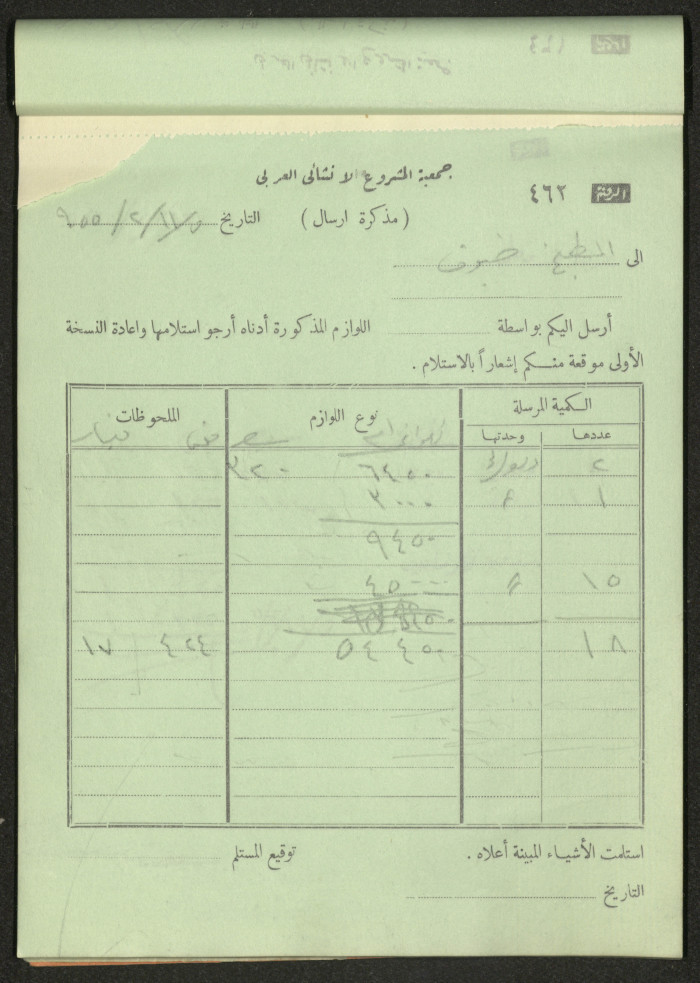 جمعية المشروع الانشائي العربي
الرقم ٤٦٢
( مذكرة ارسال ) التاريخ
الى المطبخ ضيوف
أرسل اليكم بواسطة اللوازم المذكورة أدناه أرجو استلامها واعادة النسخة
الأولى موقعة منكم إشعاراً بالاستلام .
الكمية المرسلة نوع اللوازم الملحوظات
عددها وحدتها
٢ ٦٤٥٠ ٣٢٠
١ ٣٠٠٠
٩٤٥٠
١٥ ٤٥٠٠٠
١٨ ٥٤٤٥٠ ٤٢٤ ١٧
استلمت الأشياء المبينة أعلاه . توقيع المستلم
التاريخ